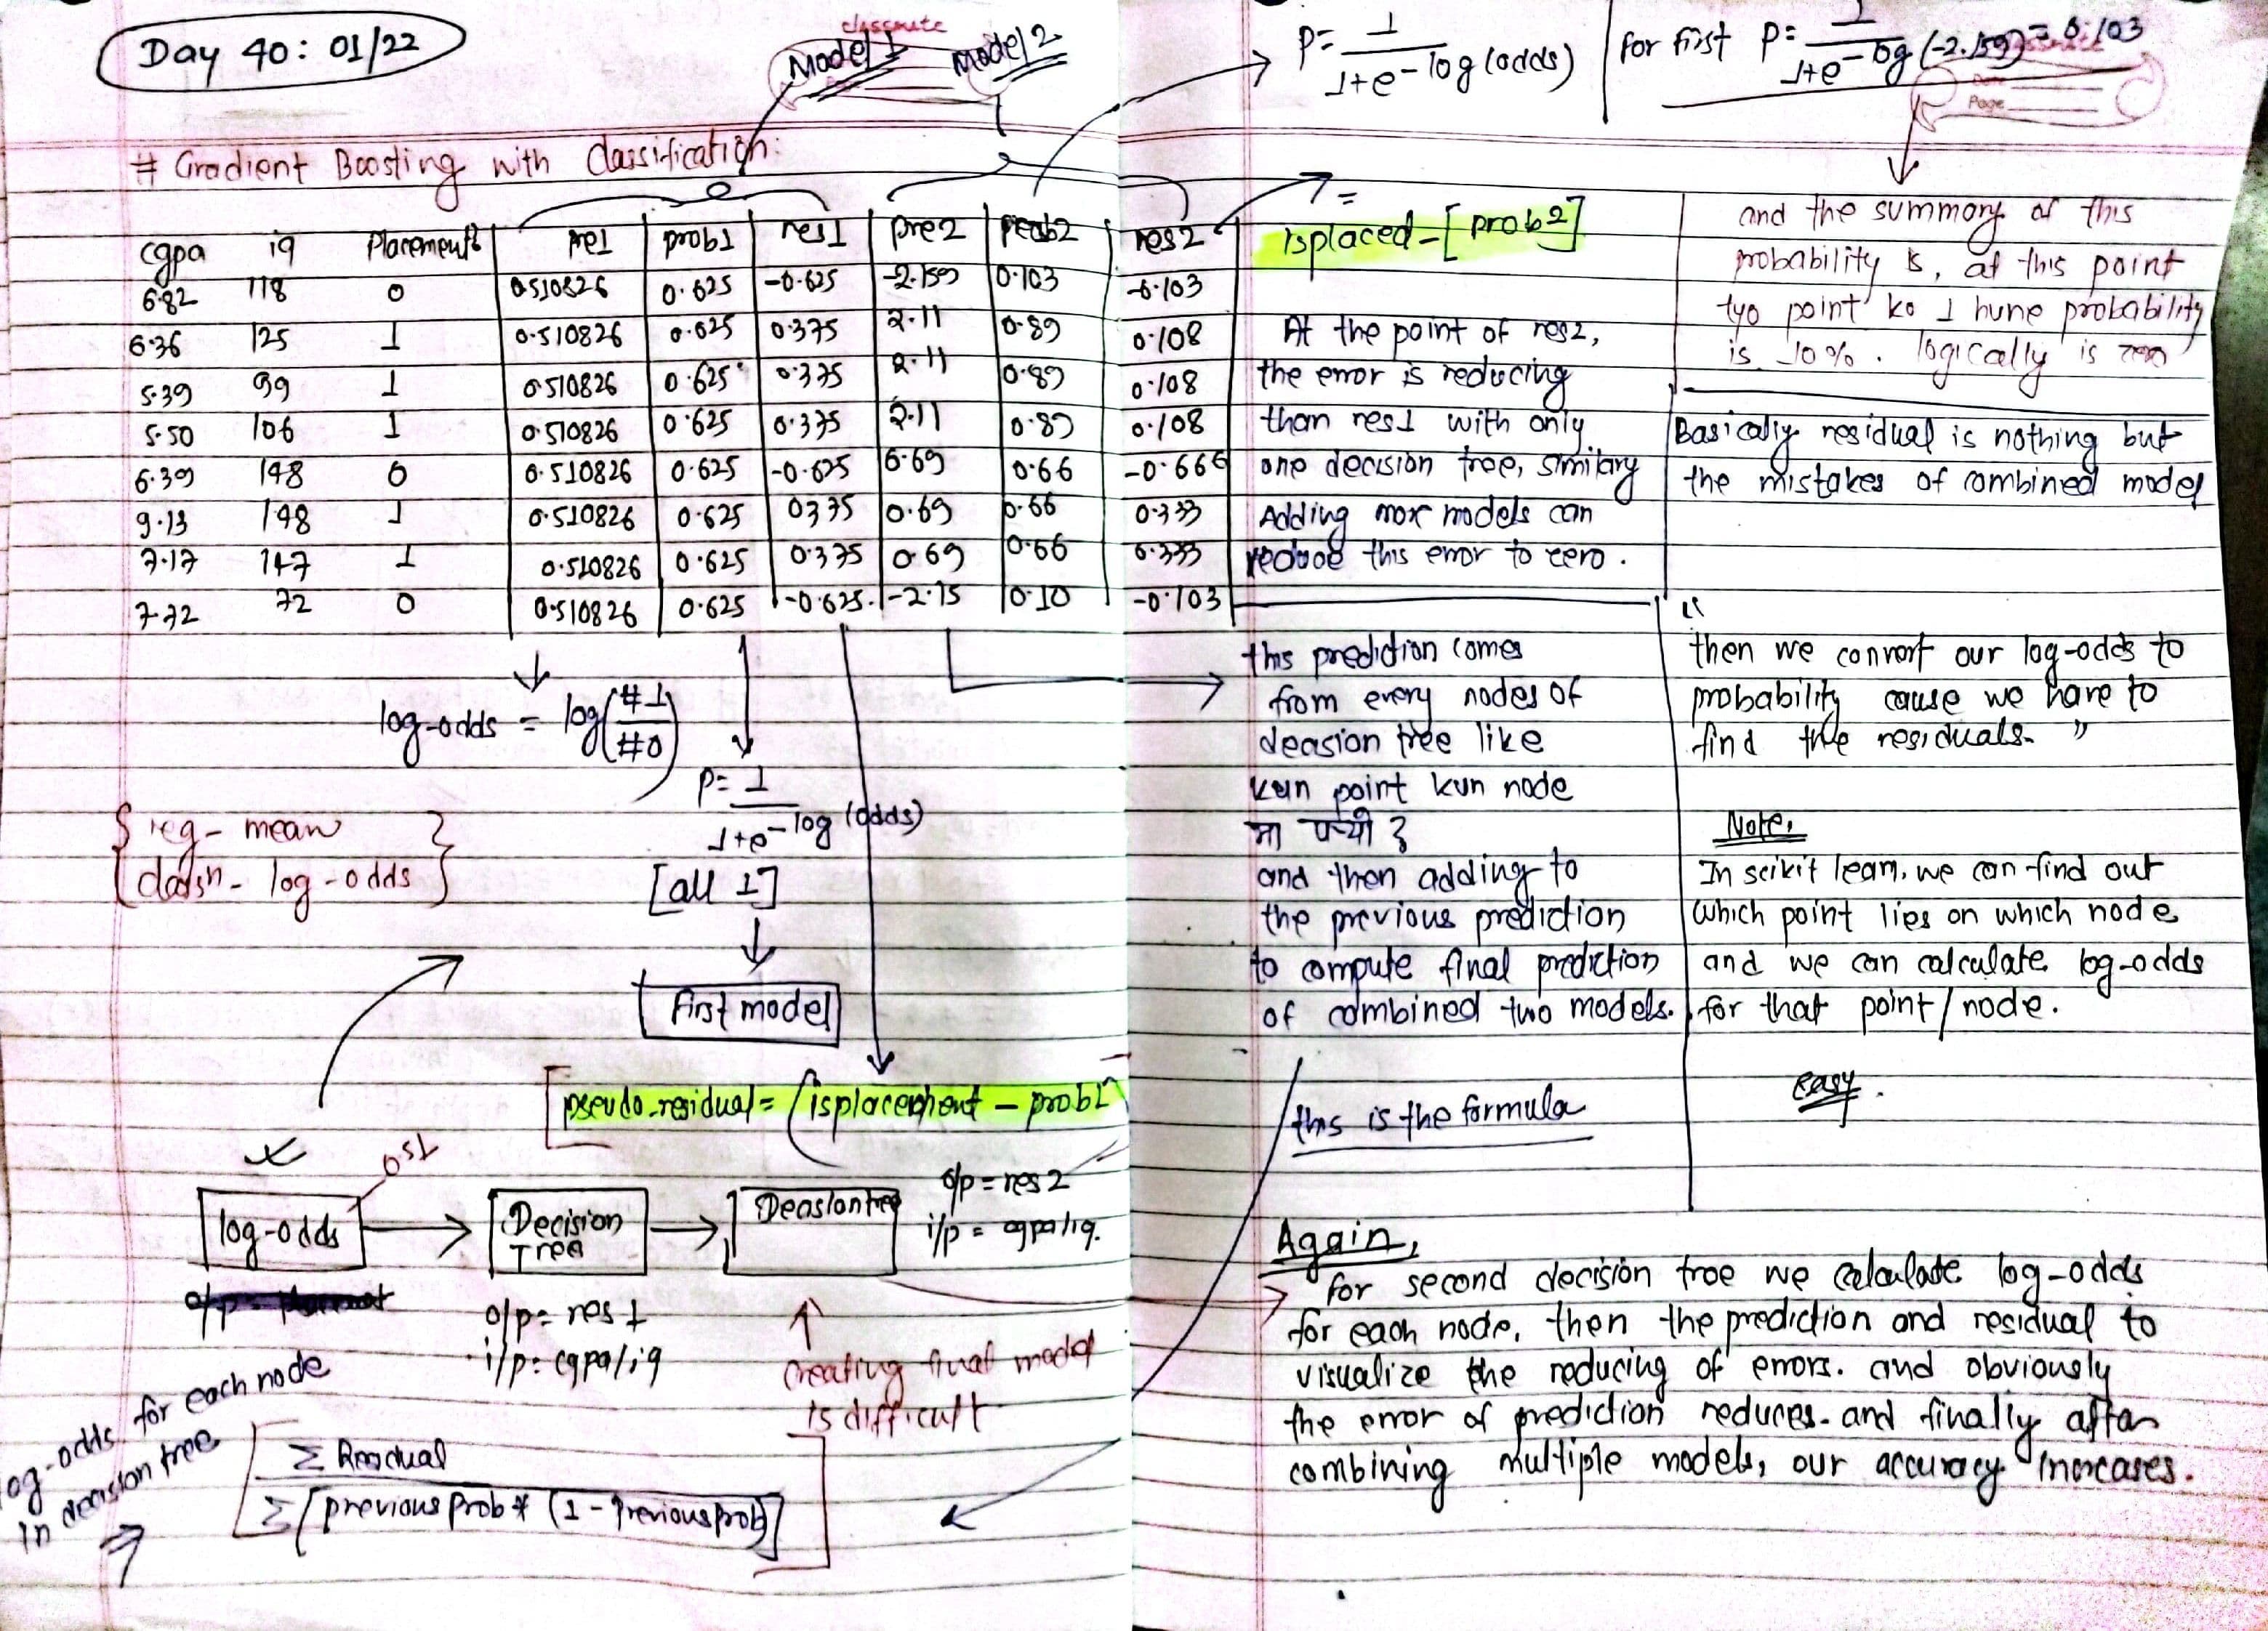 Day 40: 01/22
classmate
Model 1
Model 2
# Gradient Boosting with classification:
cgpa iq Placement pre1 prob1 res1 pre2 prob2 res2
6.82 118 0 0.510826 0.625 -0.625 -2.159 0.103 -0.103
6.36 125 1 0.510826 0.625 0.375 2.11 0.89 0.108
5.39 99 1 0.510826 0.625 0.375 2.11 0.89 0.108
5.50 106 1 0.510826 0.625 0.375 2.11 0.89 0.108
6.39 148 0 0.510826 0.625 -0.625 0.69 0.66 -0.666
9.13 148 1 0.510826 0.625 0375 0.69 0.66 0.333
7.17 147 1 0.510826 0.625 0.375 0.69 0.66 0.333
7.72 72 0 0.510826 0.625 -0.625 -2.15 0.10 -0.103
log-odds = log(#1/#0)
P= 1/1+e-log(odds)
[all 1]
First model
{reg - mean
classn - log-odds}
pseudo-residual = (isplacement - prob1
0.51
log-odds
Decision
Tree
Decision tree
o/p = res 2
i/p = cgpa/iq.
o/p = res 1
i/p: cgpa/iq
creating final model
is difficult
log-odds for each node
in decision tree
Σ Residual
Σ[previous prob * (1 - previous prob)]
P= 1/1+e-log(odds)
for first P= 1/1+e-log(-2.159) = 0.103
classmate
Page
=
isplaced-[prob2]
At the point of res2,
the error is reducing
than res1 with only
one decision tree, similary
Adding more models can
reduce this error to zero.
and the summary of this
probability is, at this point
tyo point ko 1 hune probability
is 10%. logically is zero
Basically residual is nothing but
the mistakes of combined model
this prediction comes
from every nodes of
decision tree like
kun point kun node
मा पर्‍यो ?
and then adding to
the previous prediction
to compute final prediction
of combined two models.
"
then we convert our log-odds to
probability cause we have to
find the residuals. "
Note,
In scikit learn, we can find out
which point lies on which node
and we can calculate log-odds
for that point/node.
easy.
this is the formula
Again,
for second decision tree we calculate log-odds
for each node, then the prediction and residual to
visualize the reducing of errors. and obviously
the error of prediction reduces. and finally after
combining multiple models, our accuracy increases.